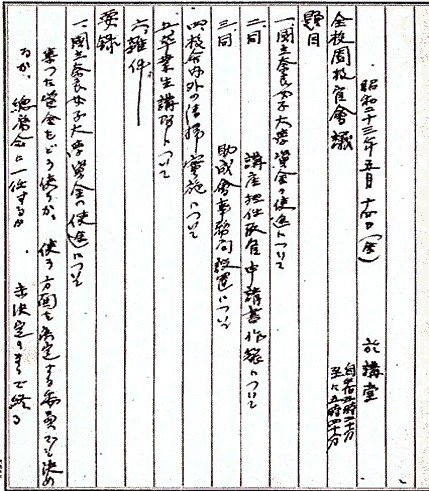 昭和二十三年五月十四日(金) 於講堂
全校園教官會議 自午后三時二十分
至〃五時四十分
題目
一、國立奈良女子大学資金の使途について
二、同 講座担任教官申請書作製について
三、同 助成會事務局設置について
四、校舎内外の清掃実施について
五、卒業生講習について
六、雑件
要録
一、國立奈良女子大学資金の使途について
集つた資金をどう使うか、使う方面を決定する委員でも決め
るか、総務会に一任するか 未決定のまゝで終る